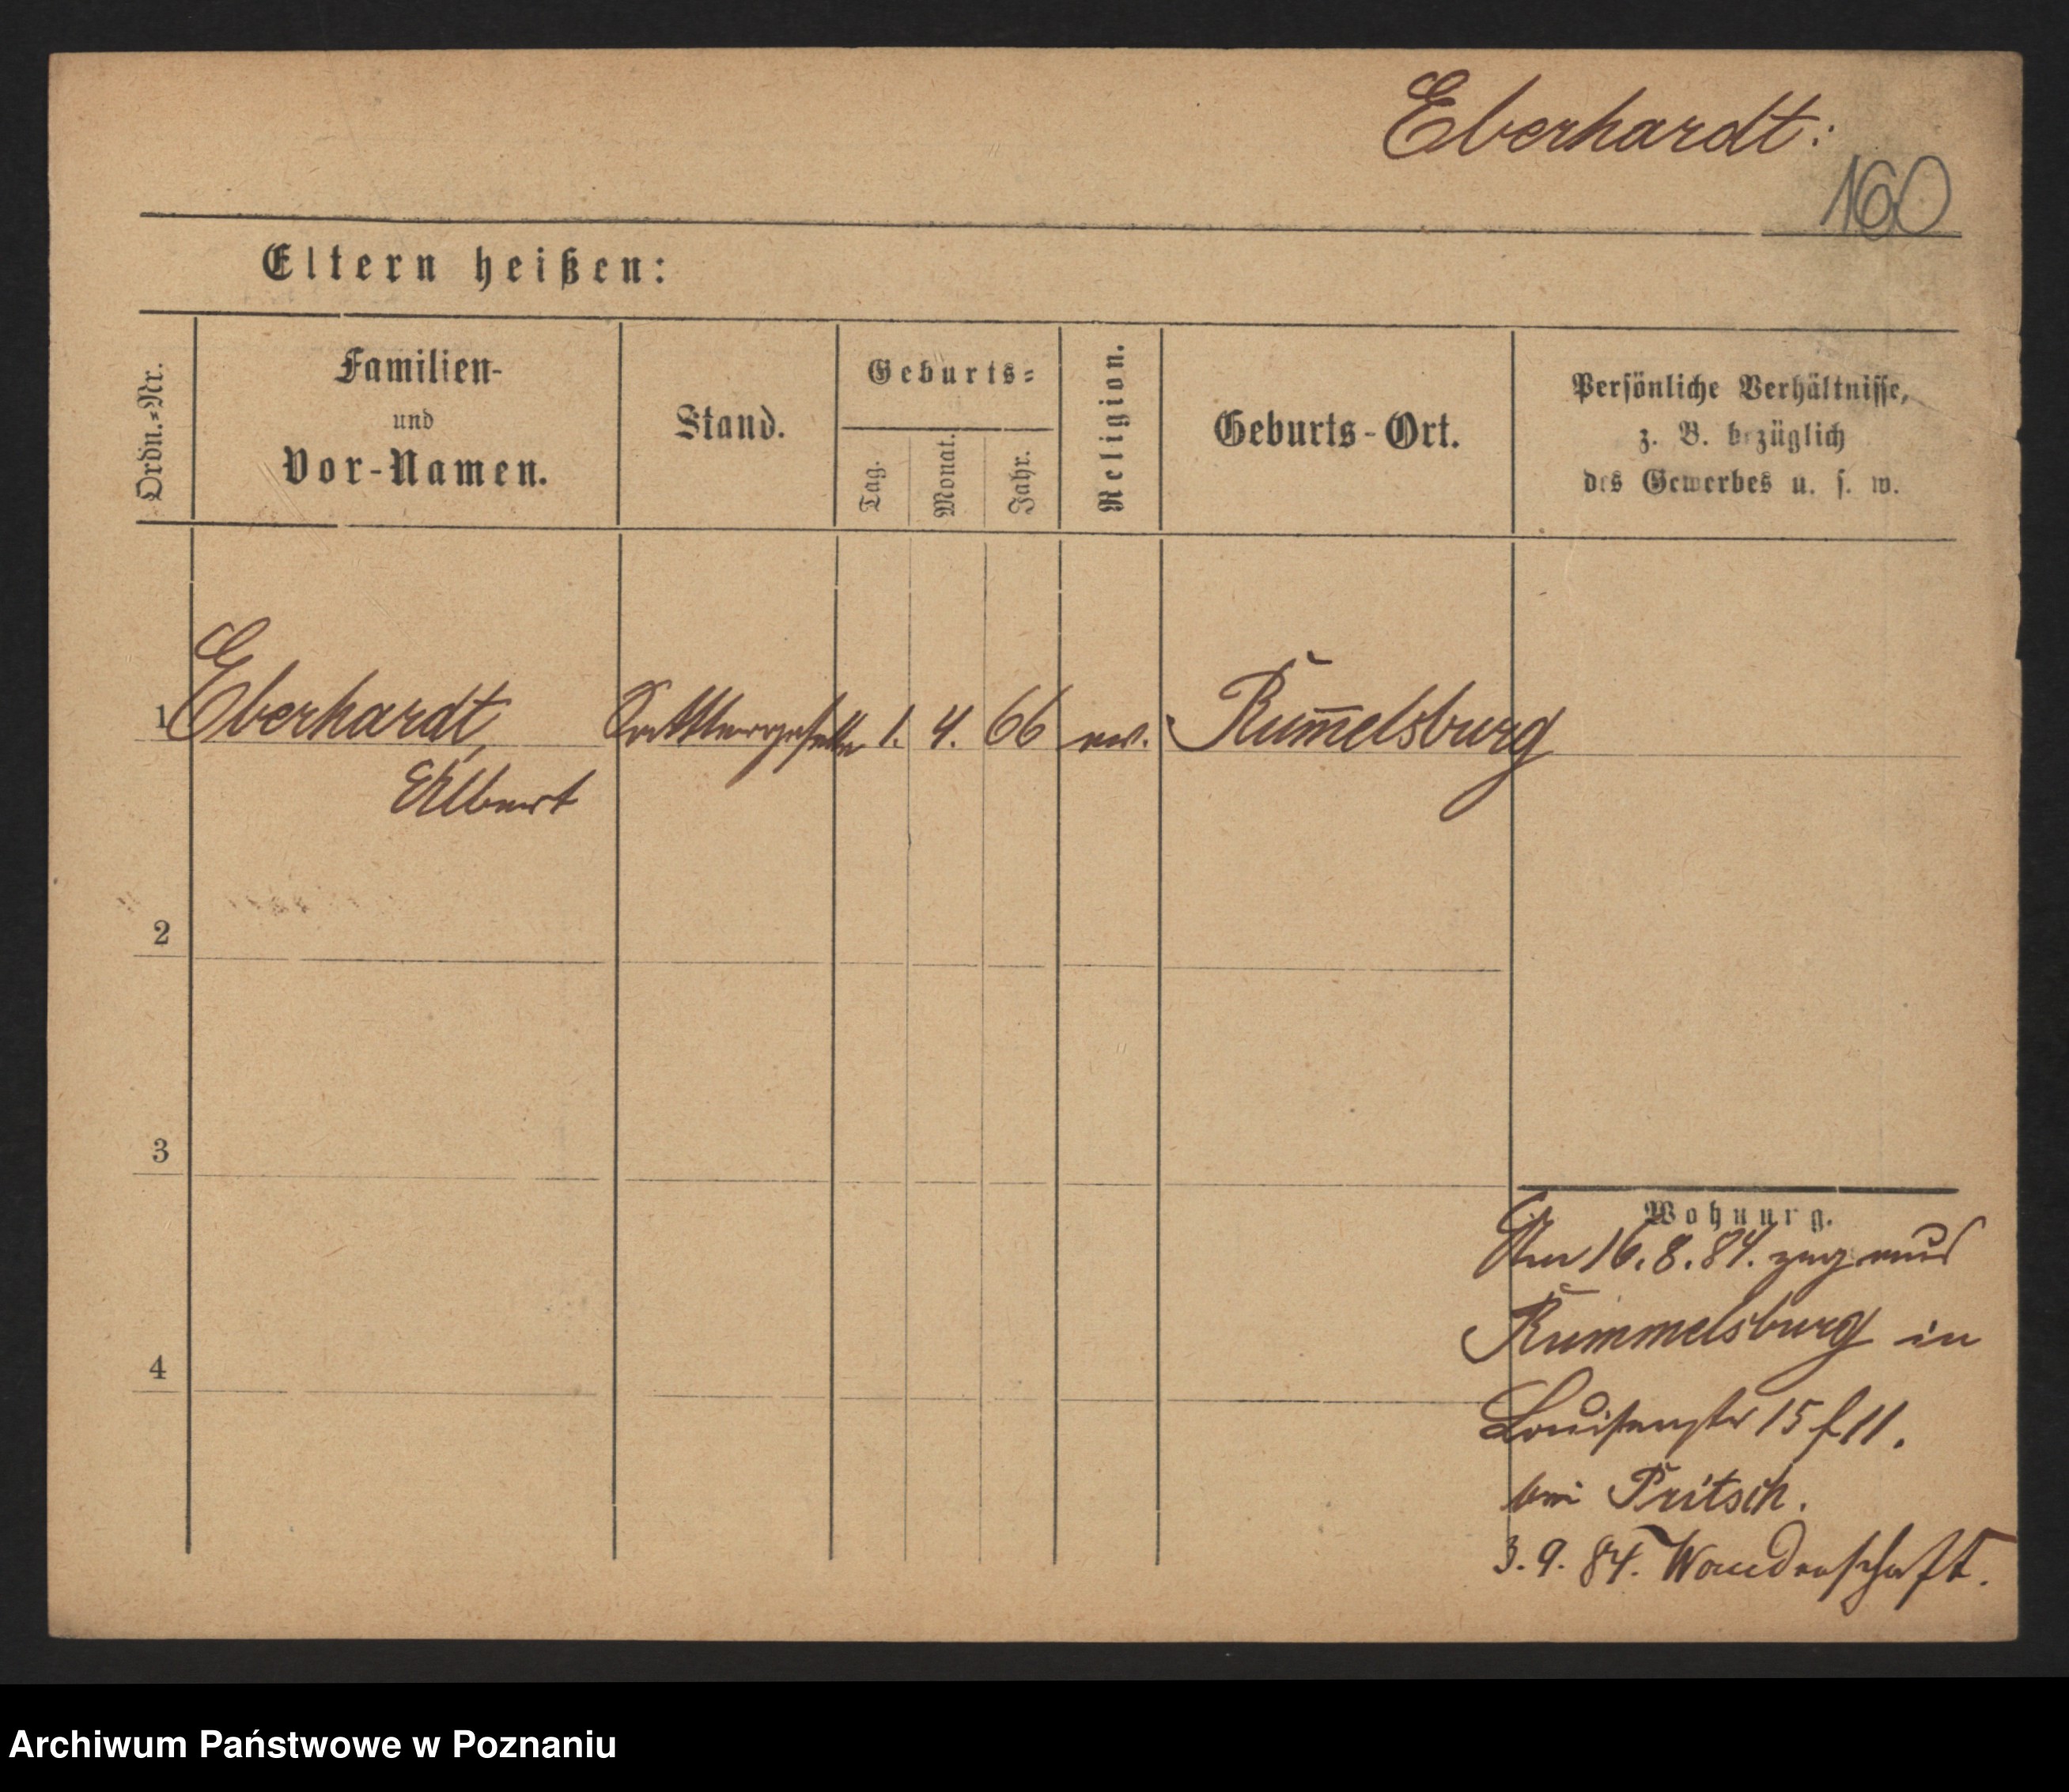 Eberhardt:
160
Eltern heißen:
Ordn.=Nr.
Familien-
und
Vor-Namen.
Stand.
Geburts=
Tag.
Monat.
Jahr.
Religion.
Geburts-Ort.
Persönliche Verhältnisse,
z. B. bezüglich
des Gewerbes u. s. w.
1 Eberhardt, Sattlergeselle 1. 4. 66 ev. Rum̅elsburg
Albert
2
3
4
Wohnung.
Am 16.8.84. zug. aus
Rummelsburg in
Louisenstr 15 f 11.
bei Pritsch.
3.9.84. Wanderschaft.
Archiwum Państwowe w Poznaniu